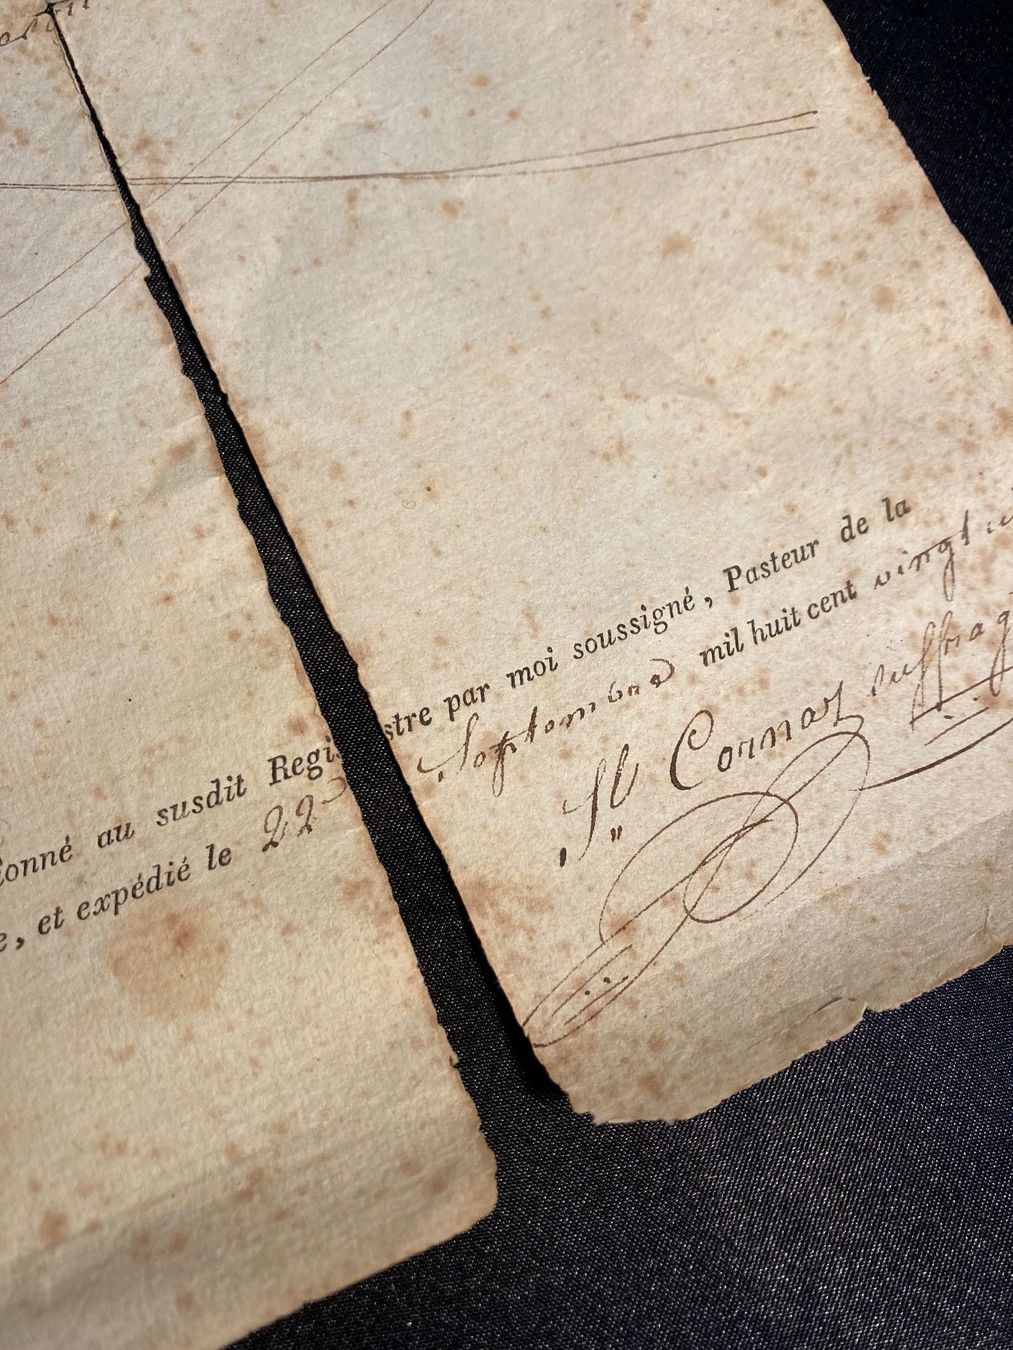 onné au susdit Registre par moi soussigné, Pasteur de la
, et expédié le 22 Septembre mil huit cent vingt
Cornaz suffrag